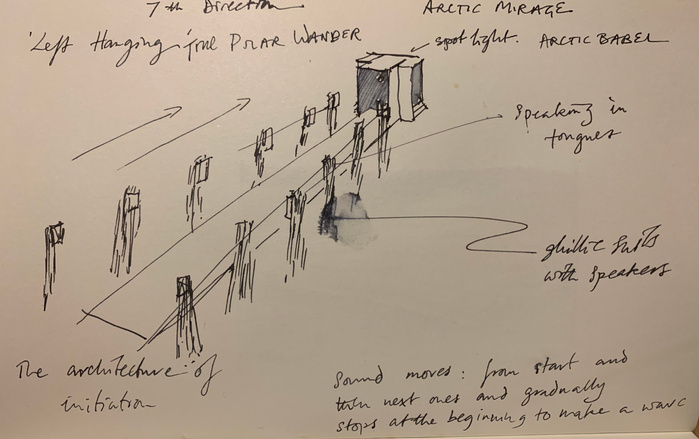 7th Direction
ARCTIC MIRAGE
'Left Hanging' True POLAR WANDER
spot light. ARCTIC BABEL
Speaking in
tongues
ghillie suits
with speakers
The architecture of
initiation
Sound moves: from start and
then next ones and gradually
stops at the beginning to make a wave